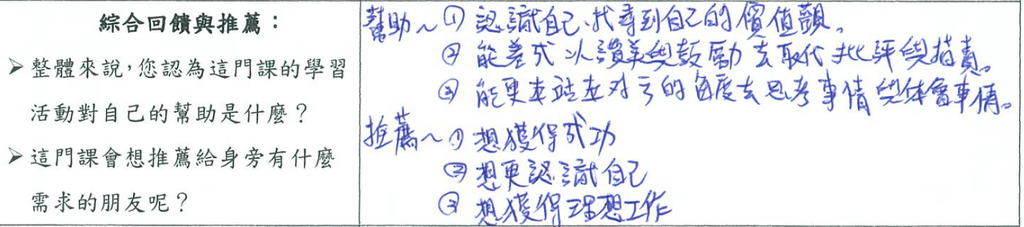 綜合回饋與推薦：
➢ 整體來說，您認為這門課的學習
活動對自己的幫助是什麼？
➢ 這門課會想推薦給身旁有什麼
需求的朋友呢？
幫助～① 認識自己、找尋到自己的價值觀。
② 能差式以讚美與鼓勵去取代批評與指責。
③ 能更站在對方的角度去思考事情與体會事情。
推薦～① 想獲得成功
② 想更認識自己
③ 想獲得理想工作